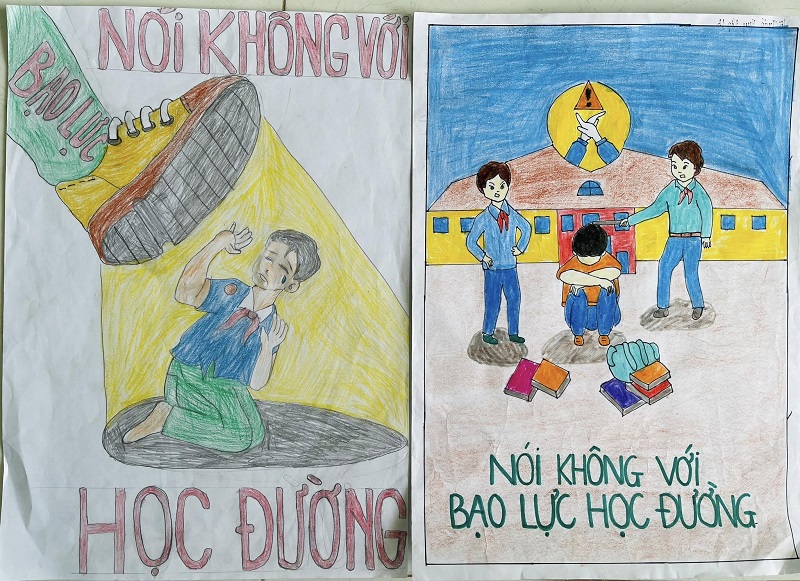 NÓI KHÔNG VỚI
BẠO LỰC
HỌC ĐƯỜNG
!
NÓI KHÔNG VỚI
BẠO LỰC HỌC ĐƯỜNG